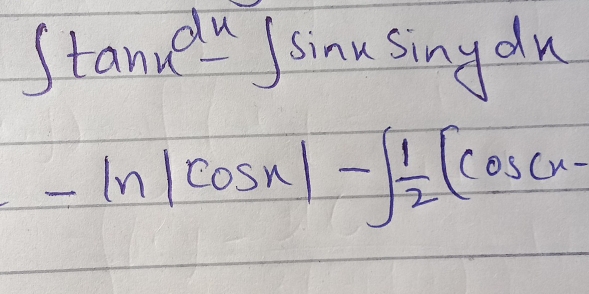 ∫ tanx dx - ∫ sinx siny dx
- ln |cosx| - ∫ 1/2 (cos(x-